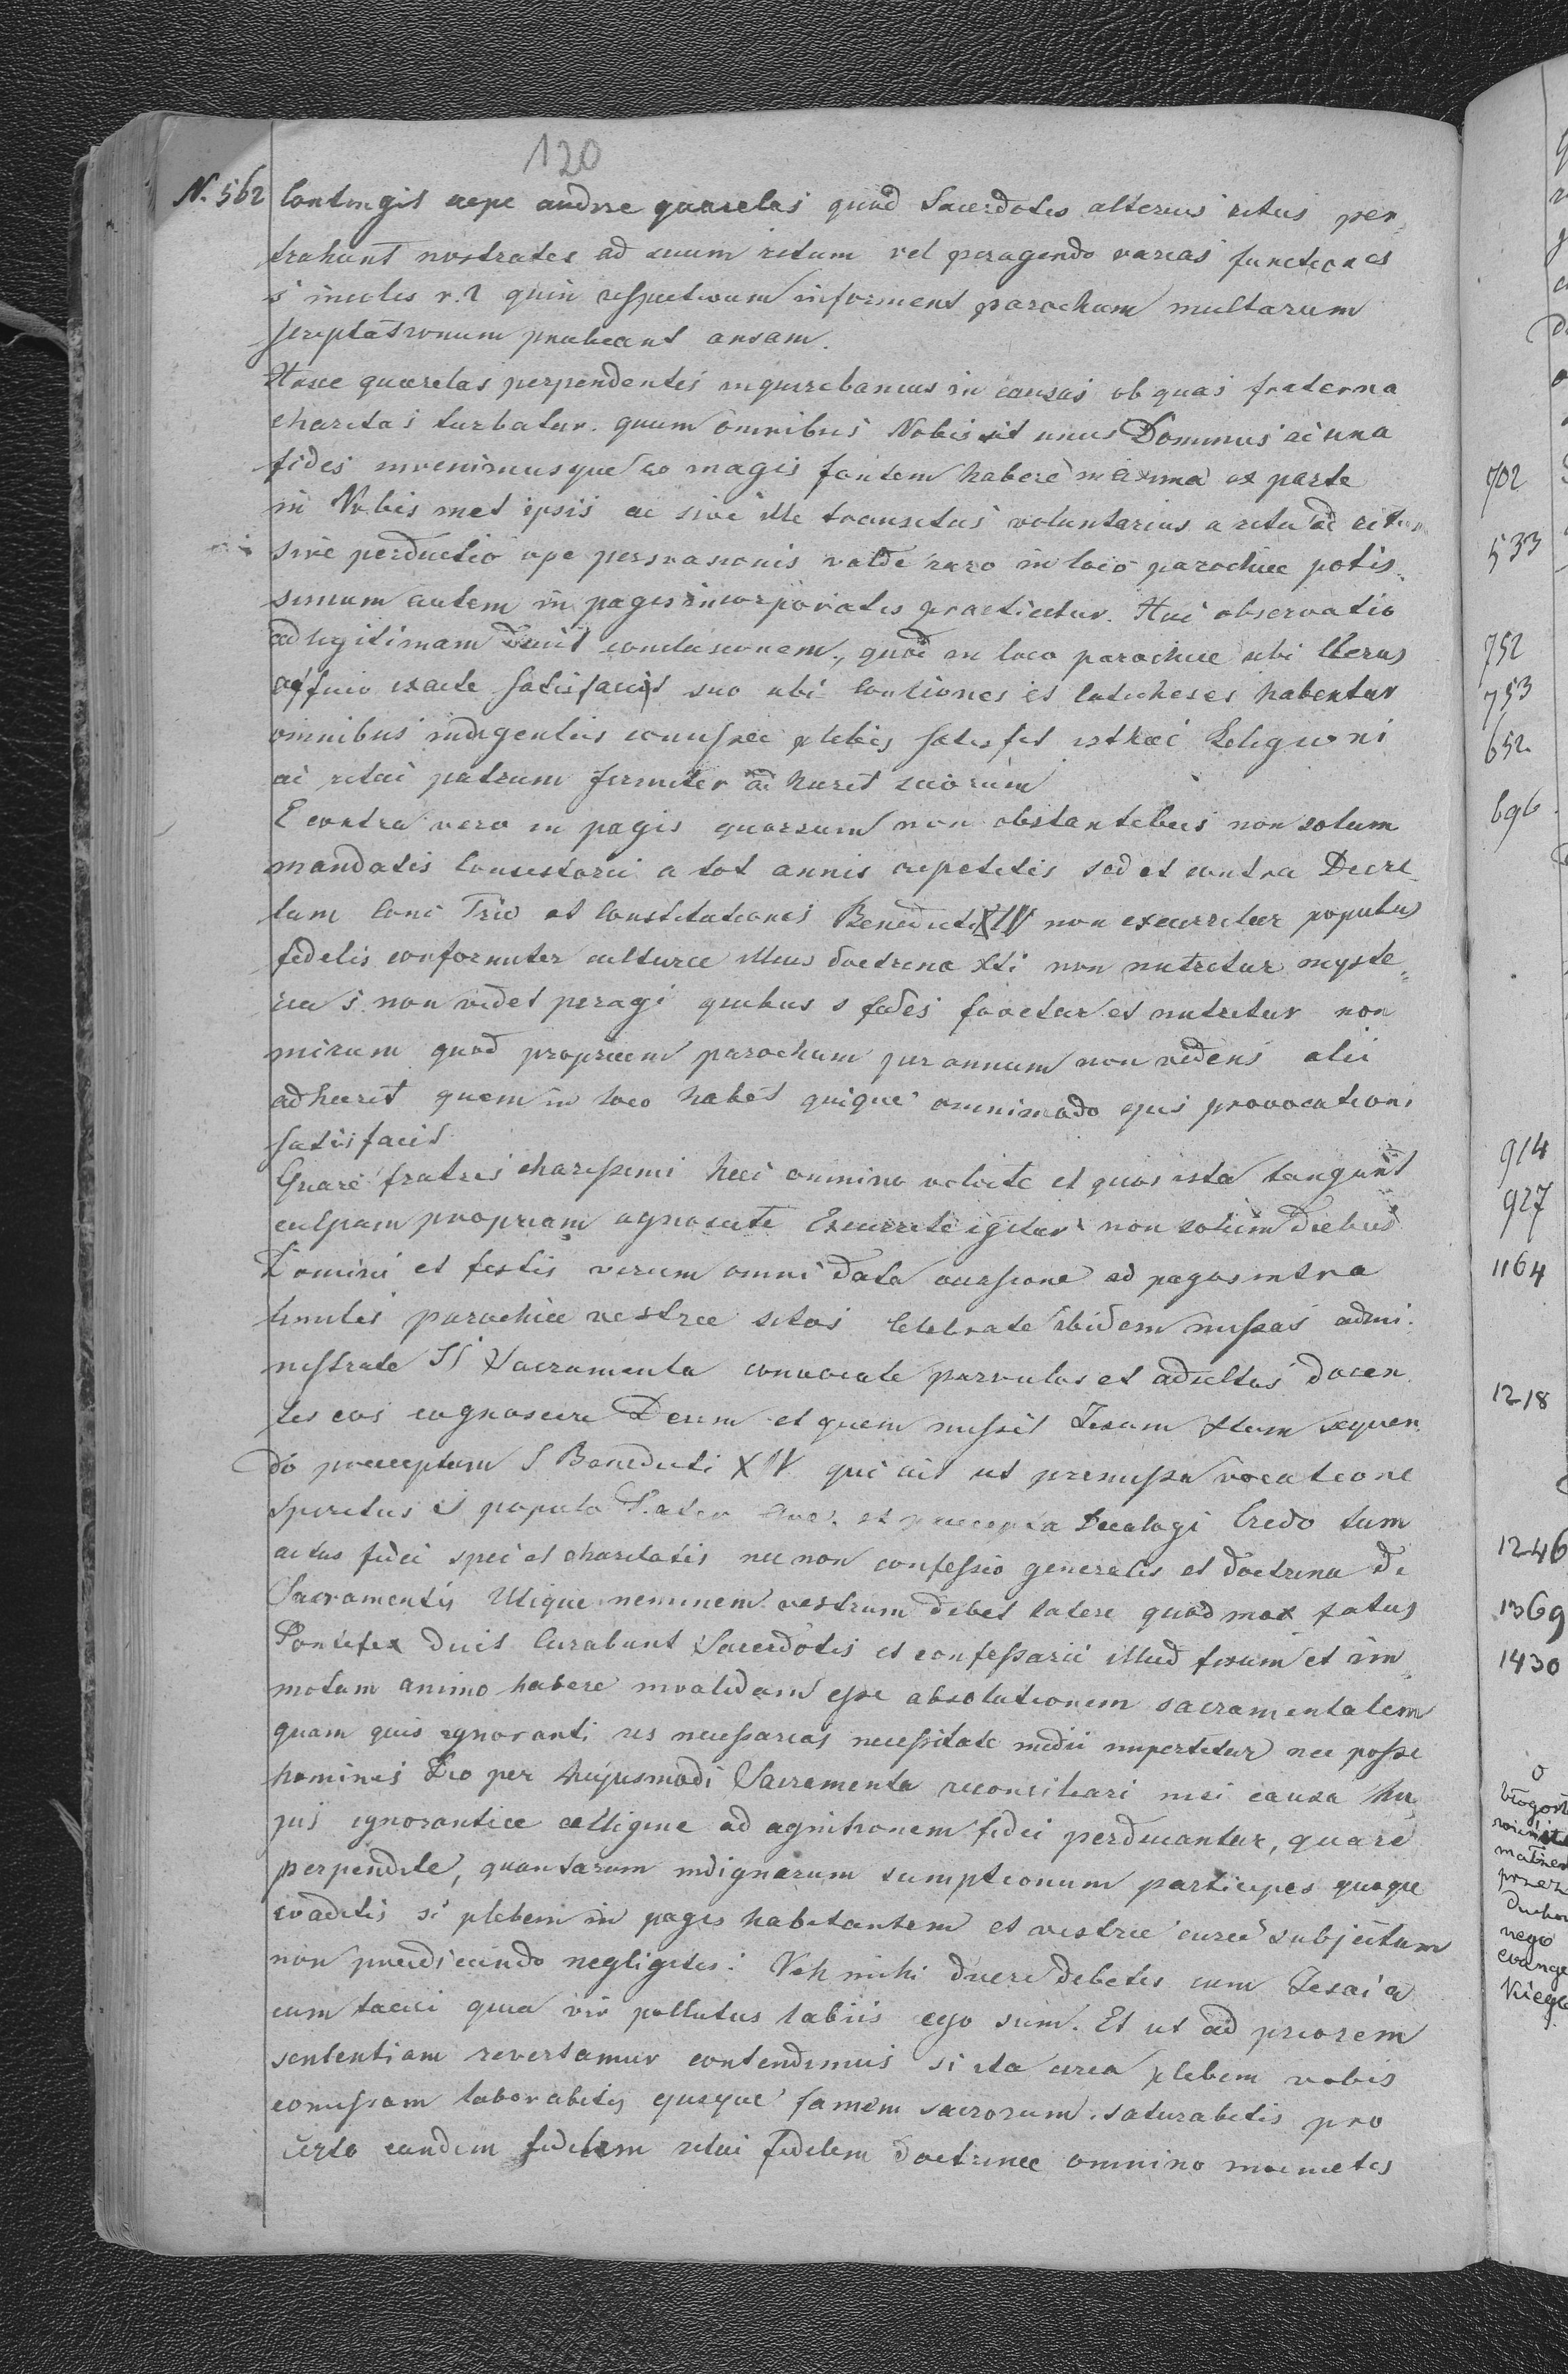 120
N. 562 Contingit aepe audire quaerelas quod Sacerdotes alterius ritus per„
trahunt nostrates ad suum ritum vel peragendo varias functiones
quin respectivum informent parochum multarum
scriptationum praebeant ansam.
Hasce quaerelas perpendentes inquirebamus in causas ob quas fraterna
charitas turbatur. quum omnibus Nobis sit unus Dominus ac una
fides invenimusque eo magis fontem habere maxima ex parte
in Nobis met ipsis ac sive ille transitus voluntarius a ritu ad ritum
sive perductio ope persvasionis valde raro in loco parochiae potis„
simum autem in pagis incorporatis practicetur. Huc observatio
ad legitimam ducit conclusionem, quod in loco parochiae ubi Clerus
officio exacte satisfacit suo ubi Contiones et Catecheses habentur
omnibus indigentiis comissae plebis satisfit isthaec Religioni
ac ritui patrum firmiter adhaeret suorum
E contra vero in pagis quorsum non obstantibus non solum
mandatis Consistorii a tot annis repetitis sed et contra Decre„
tum Conc Trid et Constitutiones Benedicti XIV non excurritur populus
fidelis conformiter culturae illius doctrina Xti non nutritur myste„
ria s. non videt peragi quibus s fides fovetur et nutritur non
mirum quod proprium parochum per annum non videns alii
adhaeret quem in loco habet quique omnimodo ejus provocationi
satisfacit
Quare fratres charissimi haec omnino et quos ista tangunt
culpam propriam agnoscite Excurrite igitur non solum diebus
Domini et festis verum omni data occasione ad pagos intra
limites parochiae vestrae sitos Celebrate ibidem missas admi„
nistrate SS Sacramenta convocate parvulos et adultos docen
tes eos cognoscere Deum et quem missit Jesum Xtum sequen
do praeceptum S Benedicti XIV qui ait ut premissa vocatione
Spiritus S populo Pater Ave. et praecepta Decalogi Credo tum
actus fidei spei et charitatis nec non confessio generalis et doctrina de
Sacramentis Utique neminem vestrum debet latere quod mox fatus
Pontifex dicit Curabunt Sacerdotes et confessarii illud fixum et im„
motum animo habere invalidam esse absolutionem sacramentalem
quam quis ignoranti res necessarias necessitate medii impertitur nec posse
homines Deo per hujusmodi Sacramenta reconciliari nisi causa hu
jus ignorantiae caligine ad agnitionem fidei perducantur, quare
perpendite, quantarum indignarum sumptionum participes quoque
evaditis si plebem in pagis habitantem et vestrae curae subjectam
non praedicando negligitis: Veh mihi dicere debetis cum Jesaia
cum tacui quia vir pollutus labiis ego sum. Et ut ad priorem
sententiam revertamur contendimus si ita circa plebem vobis
comissam laborabitis ejusque famem sacrorum saturabitis pro
certo eandem fidelem ritui fidelem doctrinae omnino
702
533
752
753
652
696
914
927
1164
1218
1246
1369
1430